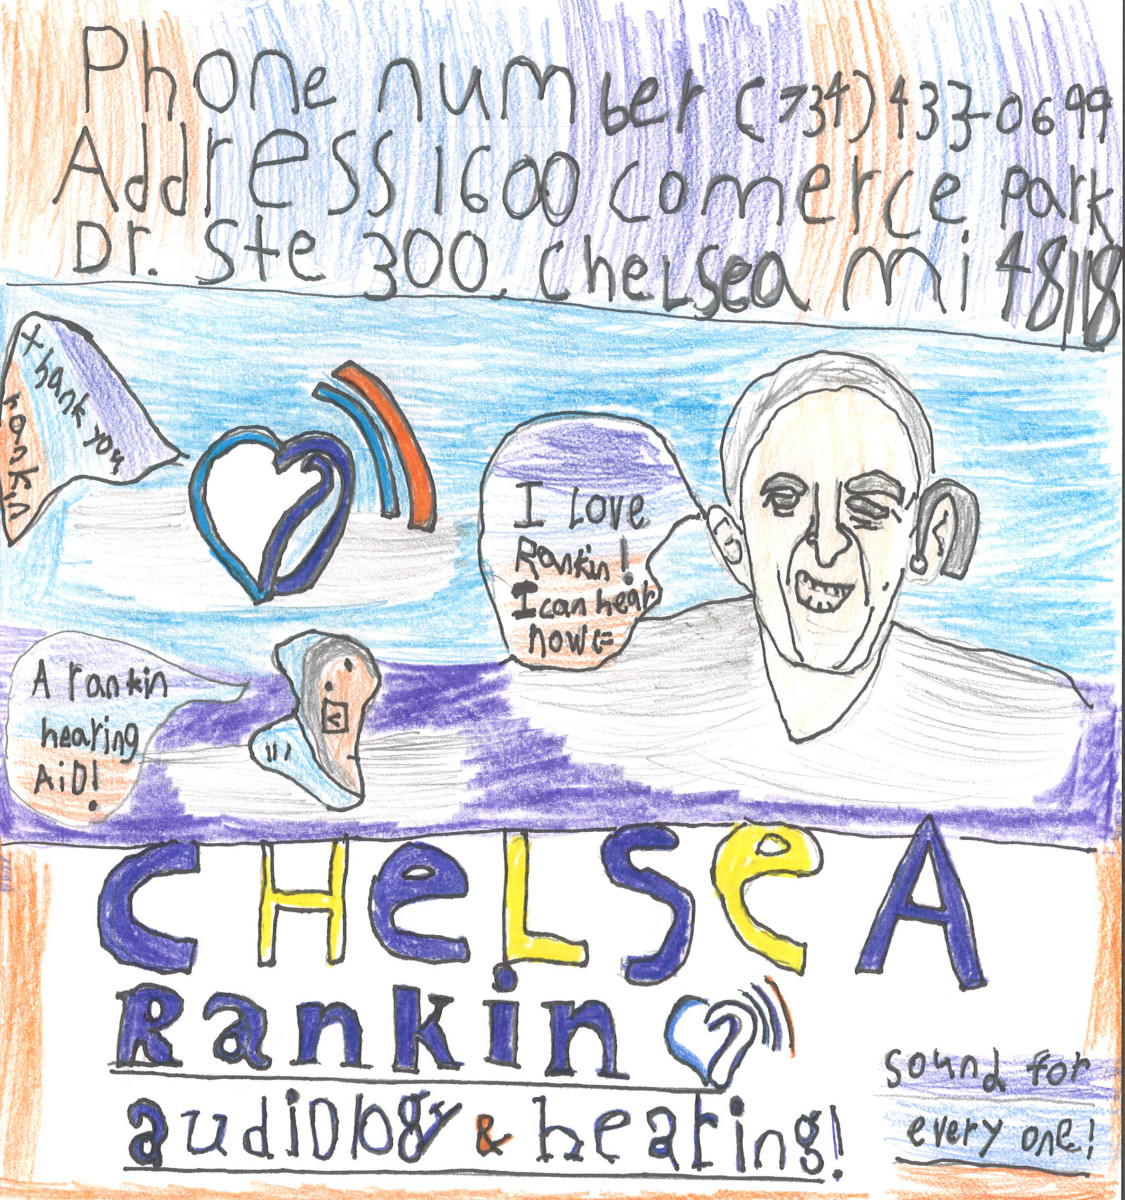 Phone number (734) 433-0699
Address 1600 comerce Park
Dr. Ste 300, Chelsea mi 48118
thank you
rankin
I Love
Rankin!
I can hear
now=
A rankin
hearing
AiD!
CHeLSeA
Rankin
audiology & hearing!
sound for
every one!